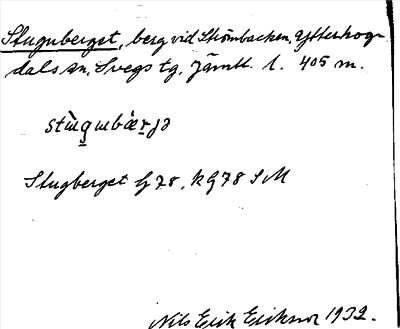 Stugunberget, berg vid Strömbacken, Ytterhog-
dals sn, Svegs tg. Jämtl. l. 405 m.
stùgu̱mbàrjə
Stugberget G 78, k G 78 SM
Nils Erik Eriksson 1932.